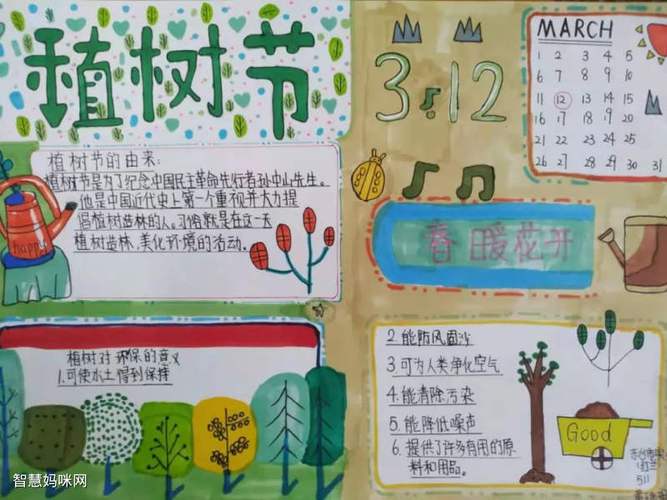 植树节
3.12
MARCH
1 2 3 4 5
6 7 8 9 10
11 12 13 14 15
16 17 18 19 20
21 22 23 24 25
26 27 28 29 30 31
植树节的由来:
植树节是为了纪念中国民主革命先行者孙中山先生。
他是中国近代史上第一个重视并大力提
倡植树造林的人。习俗就是在这一天
植树造林、美化环境的活动。
happy
春暖花开
植树对环保的意义
1.可使水土得到保持
2.能防风固沙
3.可为人类净化空气
4.能清除污染
5.能降低噪声
6.提供了许多有用的原
料和用品。
Good
511
智慧妈咪网